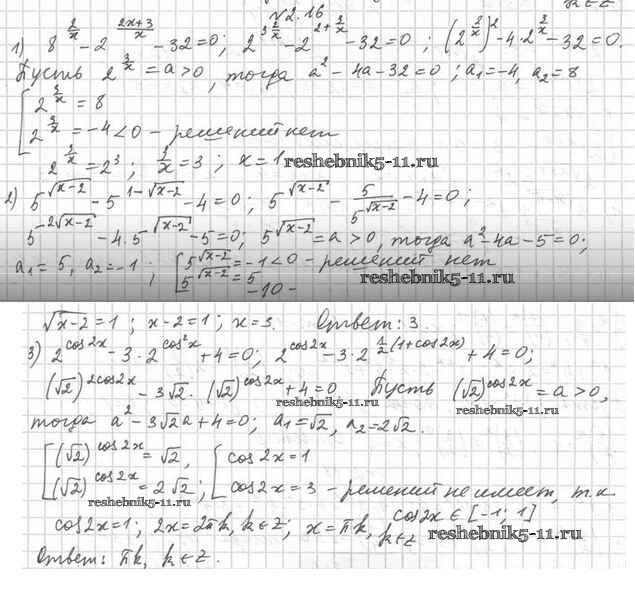 √2.16
1) 8^(2/x) - 2^((2x+3)/x) - 32 = 0; 2^(3·2/x) - 2^(2+3/x) - 32 = 0; (2^(3/x))^2 - 4·2^(3/x) - 32 = 0.
Пусть 2^(3/x) = a > 0, тогда a² - 4a - 32 = 0; a₁ = -4, a₂ = 8
[2^(3/x) = 8
2^(3/x) = -4 < 0 - решений нет
2^(3/x) = 2³; 3/x = 3; x = 1 reshebnik5-11.ru
2) 5^(√(x-2)) - 5^(1-√(x-2)) - 4 = 0; 5^(√(x-2)) - 5/5^(√(x-2)) - 4 = 0;
5^(-2√(x-2)) - 4·5^(√(x-2)) - 5 = 0; 5^(√(x-2)) = a > 0, тогда a² - 4a - 5 = 0;
a₁ = 5, a₂ = -1; [5^(√(x-2)) = -1 < 0 - решений нет
5^(√(x-2)) = 5 reshebnik5-11.ru
- 10 -
√(x-2) = 1; x - 2 = 1; x = 3. Ответ: 3
3) 2^(cos2x) - 3·2^(cos²x) + 4 = 0; 2^(cos2x) - 3·2^(1/2(1+cos2x)) + 4 = 0;
(√2)^(2cos2x) - 3√2·(√2)^(cos2x) + 4 = 0 Пусть (√2)^(cos2x) = a > 0,
reshebnik5-11.ru reshebnik5-11.ru
тогда a² - 3√2a + 4 = 0; a₁ = √2, a₂ = 2√2.
[(√2)^(cos2x) = √2, [cos2x = 1
(√2)^(cos2x) = 2√2; cos2x = 3 - решений не имеет, т.к.
reshebnik5-11.ru
cos2x ∈ [-1; 1]
cos2x = 1; 2x = 2πk, k∈z; x = πk, k∈z reshebnik5-11.ru
Ответ: πk, k∈z.